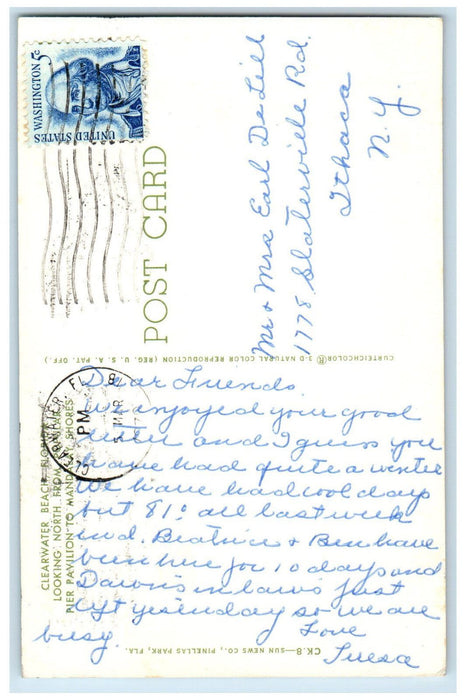 WASHINGTON 5c
UNITED STATES
POST CARD
Mr + Mrs Earl De Lill
1778 Slaterville Rd.
Ithaca
N.Y.
CURTEICHCOLOR® 3-D NATURAL COLOR REPRODUCTION (REG. U. S. A. PAT. OFF.)
CLEARWATER
FL
PM
MAR
CLEARWATER BEACH, FLORIDA
LOOKING NORTH FROM
PIER PAVILION TO MANDALAY SHORES
Dear Friends
We enjoyed your good
letter and I guess you
have had quite a winter
We have had cool days
but 81° all last week
ind. Beatrice + Ben have
been here for 10 days and
Dawn's in laws just
left yesterday so we are
busy. Love
Teresa
CK.8—SUN NEWS CO., PINELLAS PARK, FLA.